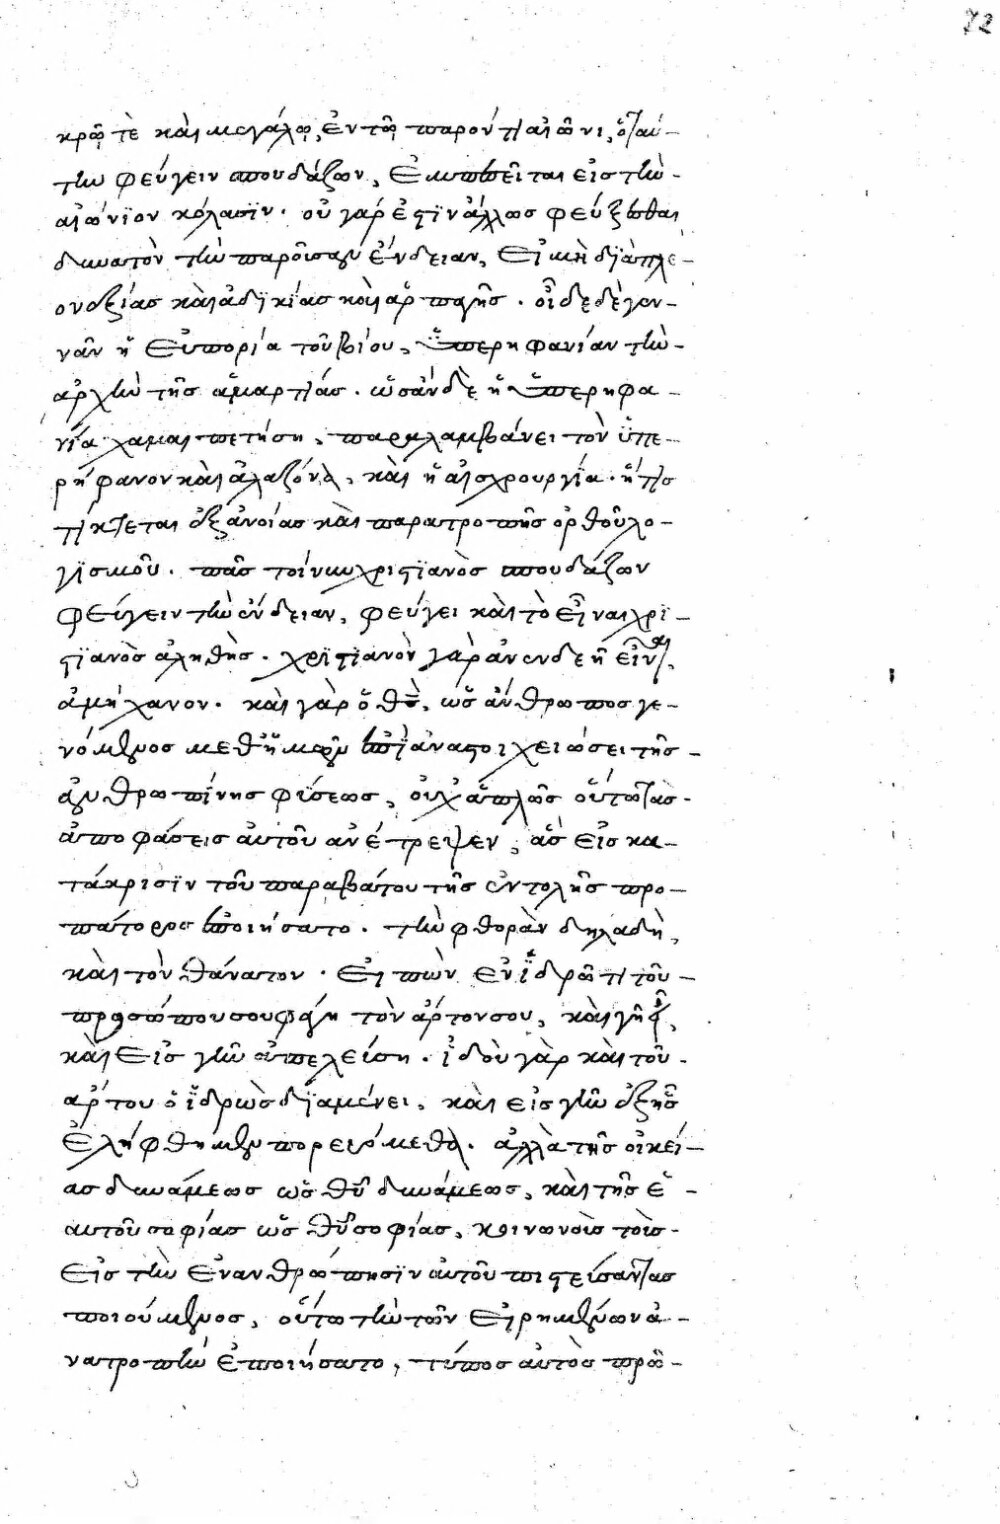 72
κρῶ τὲ καὶ μεγάλω, ἐν τῶ παρόντι αἰῶνι, ὁ ταύ-
την φεύγειν σπουδάζων, ἐμπεσεῖται εἰς τὴν
αἰώνϊον κόλασϊν. οὐ γάρ ἐστϊν ἄλλως φεύξεσθαι
δυνατὸν τὴν παροῦσαν ἔνδειαν, εἰ μὴ δϊὰ πλε-
ονεξίας καὶ ἀδϊκίας καὶ ἁρπαγῆς. οἶδε δὲ γεν-
νᾶν ἡ εὐπορία τοῦ βίου, ὑπερηφανίαν τὴν
ἀρχὴν τῆς ἁμαρτίας. ὡς ἂν δὲ ἡ ὑπερηφα-
νία χαμαιπετήση, παραλαμβάνει τὸν ὑπε-
ρήφανον καὶ ἀλαζόνα, καὶ ἡ αἰσχρουργία. ἥτις
τίκτεται ἐξ ἀνοίας καὶ παρατροπῆς ὀρθοῦ λο-
γϊσμοῦ. πᾶς τοίνυν χριστϊανὸς σπουδάζων
φεύγειν τὴν ἔνδειαν, φεύγει καὶ τὸ εἶναι χρϊ-
στϊανὸς ἀληθὴς. χρϊστϊανὸν γὰρ ἀνενδεῆ εἶναι,
ἀμήχανον. καὶ γὰρ ὁ θς, ὡς ἄνθρωπος γε-
νόμενος μεθ ἡμῶν ἐπὶ ἀναστοιχειώσει τῆς
ἀνθρωπίνης φύσεως, οὐχ ἁπλῶς οὕτω τὰς
ἀποφάσεις αὐτοῦ ἀνέτρεψεν, ἃς εἰς κα-
τάκρισϊν τοῦ παραβάτου τῆς ἐντολῆς προ-
πάτορος ἐποιήσατο. τὴν φθορὰν δηλαδὴ,
καὶ τὸν θάνατον. εἰπὼν ἐν ἱδρῶτι τοῦ
προσώπου σου φάγη τὸν ἄρτον σου, καὶ γῆ εἶ,
καὶ εἰς γῆν ἀπελεύση. ἰδοὺ γὰρ καὶ τοῦ
ἄρτου ὁ ἱδρὼς δϊαμένει, καὶ εἰς γῆν ἐξ ἧς
ἐλήφθημεν πορευόμεθα. ἀλλὰ τῆς οἰκεί-
ας δυνάμεως ὡς θυ δυνάμεως, καὶ τῆς ἑ-
αυτοῦ σοφίας ὡς θυ σοφίας, κοινωνοὺς τοὺς
εἰς τὴν ἐνανθρώπησϊν αὐτοῦ πιστεύσαντας
ποιούμενος, οὕτω τὴν τῶν εἰρημένων ἀ-
νατροπὴν ἐποιήσατο, τύπος αὐτὸς πρῶ-